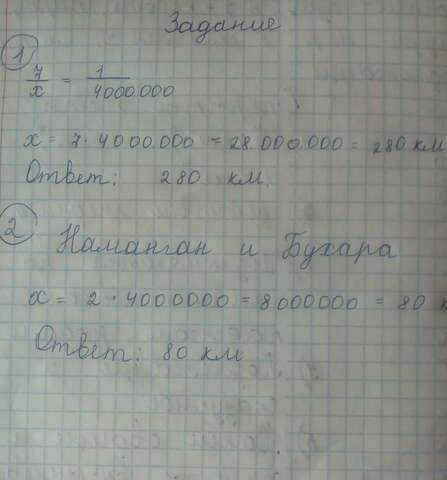 Задание
1
7/x = 1/4000.000
x = 7 · 4000.000 = 28.000.000 = 280 км
Ответ: 280 км.
2 Наманган и Бухара
x = 2 · 4000000 = 8000000 = 80 к
Ответ: 80 км